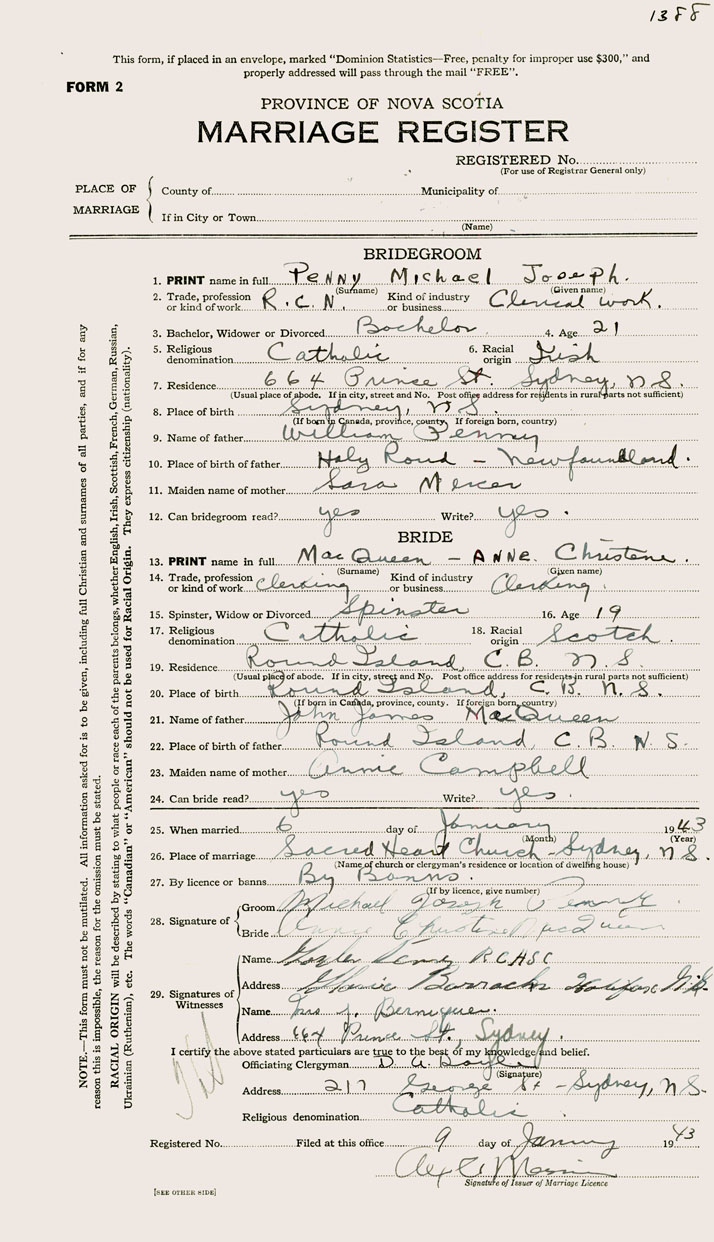 1388
This form, if placed in an envelope, marked "Dominion Statistics—Free, penalty for improper use $300," and
properly addressed will pass through the mail "FREE".
FORM 2
PROVINCE OF NOVA SCOTIA
MARRIAGE REGISTER
REGISTERED No.
(For use of Registrar General only)
PLACE OF MARRIAGE
County of Municipality of
If in City or Town
(Name)
BRIDEGROOM
1. PRINT name in full Penny Michael Joseph.
(Surname) (Given name)
2. Trade, profession or kind of work R.C.N. Kind of industry or business Clerical work.
3. Bachelor, Widower or Divorced Bachelor 4. Age 21
5. Religious denomination Catholic 6. Racial origin Irish
7. Residence 664 Prince St. Sydney, N.S.
(Usual place of abode. If in city, street and No. Post office address for residents in rural parts not sufficient)
8. Place of birth Sydney, N.S.
(If born in Canada, province, county. If foreign born, country)
9. Name of father William Penny
10. Place of birth of father Holy Roud - Newfoundland.
11. Maiden name of mother Sara Mercer
12. Can bridegroom read? yes Write? yes.
BRIDE
13. PRINT name in full MacQueen - Anne. Christene.
(Surname) (Given name)
14. Trade, profession or kind of work Clerking Kind of industry or business Clerking.
15. Spinster, Widow or Divorced Spinster 16. Age 19
17. Religious denomination Catholic 18. Racial origin Scotch.
19. Residence Round Island, C.B. N.S.
(Usual place of abode. If in city, street and No. Post office address for residents in rural parts not sufficient)
20. Place of birth Round Island, C.B. N.S.
(If born in Canada, province, county. If foreign born, country)
21. Name of father John James MacQueen
22. Place of birth of father Round Island, C.B N.S.
23. Maiden name of mother Annie Campbell
24. Can bride read? yes Write? yes.
25. When married 6 day of January 1943
(Month) (Year)
26. Place of marriage Sacred Heart Church - Sydney, N.S.
(Name of church or clergyman's residence or location of dwelling house)
27. By licence or banns By Banns.
(If by licence, give number)
28. Signature of
Groom Michael Joseph Penny
Bride Annie Christine MacQueen
29. Signatures of Witnesses
Name RCASC
Address Barracks Halifax N.S.
Name Mrs J. Bernique.
Address 664 Prince St., Sydney.
I certify the above stated particulars are true to the best of my knowledge and belief.
Officiating Clergyman D. A.
(Signature)
Address 217 George St - Sydney, N.S.
Religious denomination Catholic.
Registered No. Filed at this office 9 day of January 1943
Signature of Issuer of Marriage Licence
[SEE OTHER SIDE]
NOTE.—This form must not be mutilated. All information asked for is to be given, including full Christian and surnames of all parties, and if for any
reason this is impossible, the reason for the omission must be stated.
RACIAL ORIGIN will be described by stating to what people or race each of the parents belongs, whether English, Irish, Scottish, French, German, Russian,
Ukrainian (Ruthenian), etc. The words "Canadian" or "American" should not be used for Racial Origin. They express citizenship (nationality).